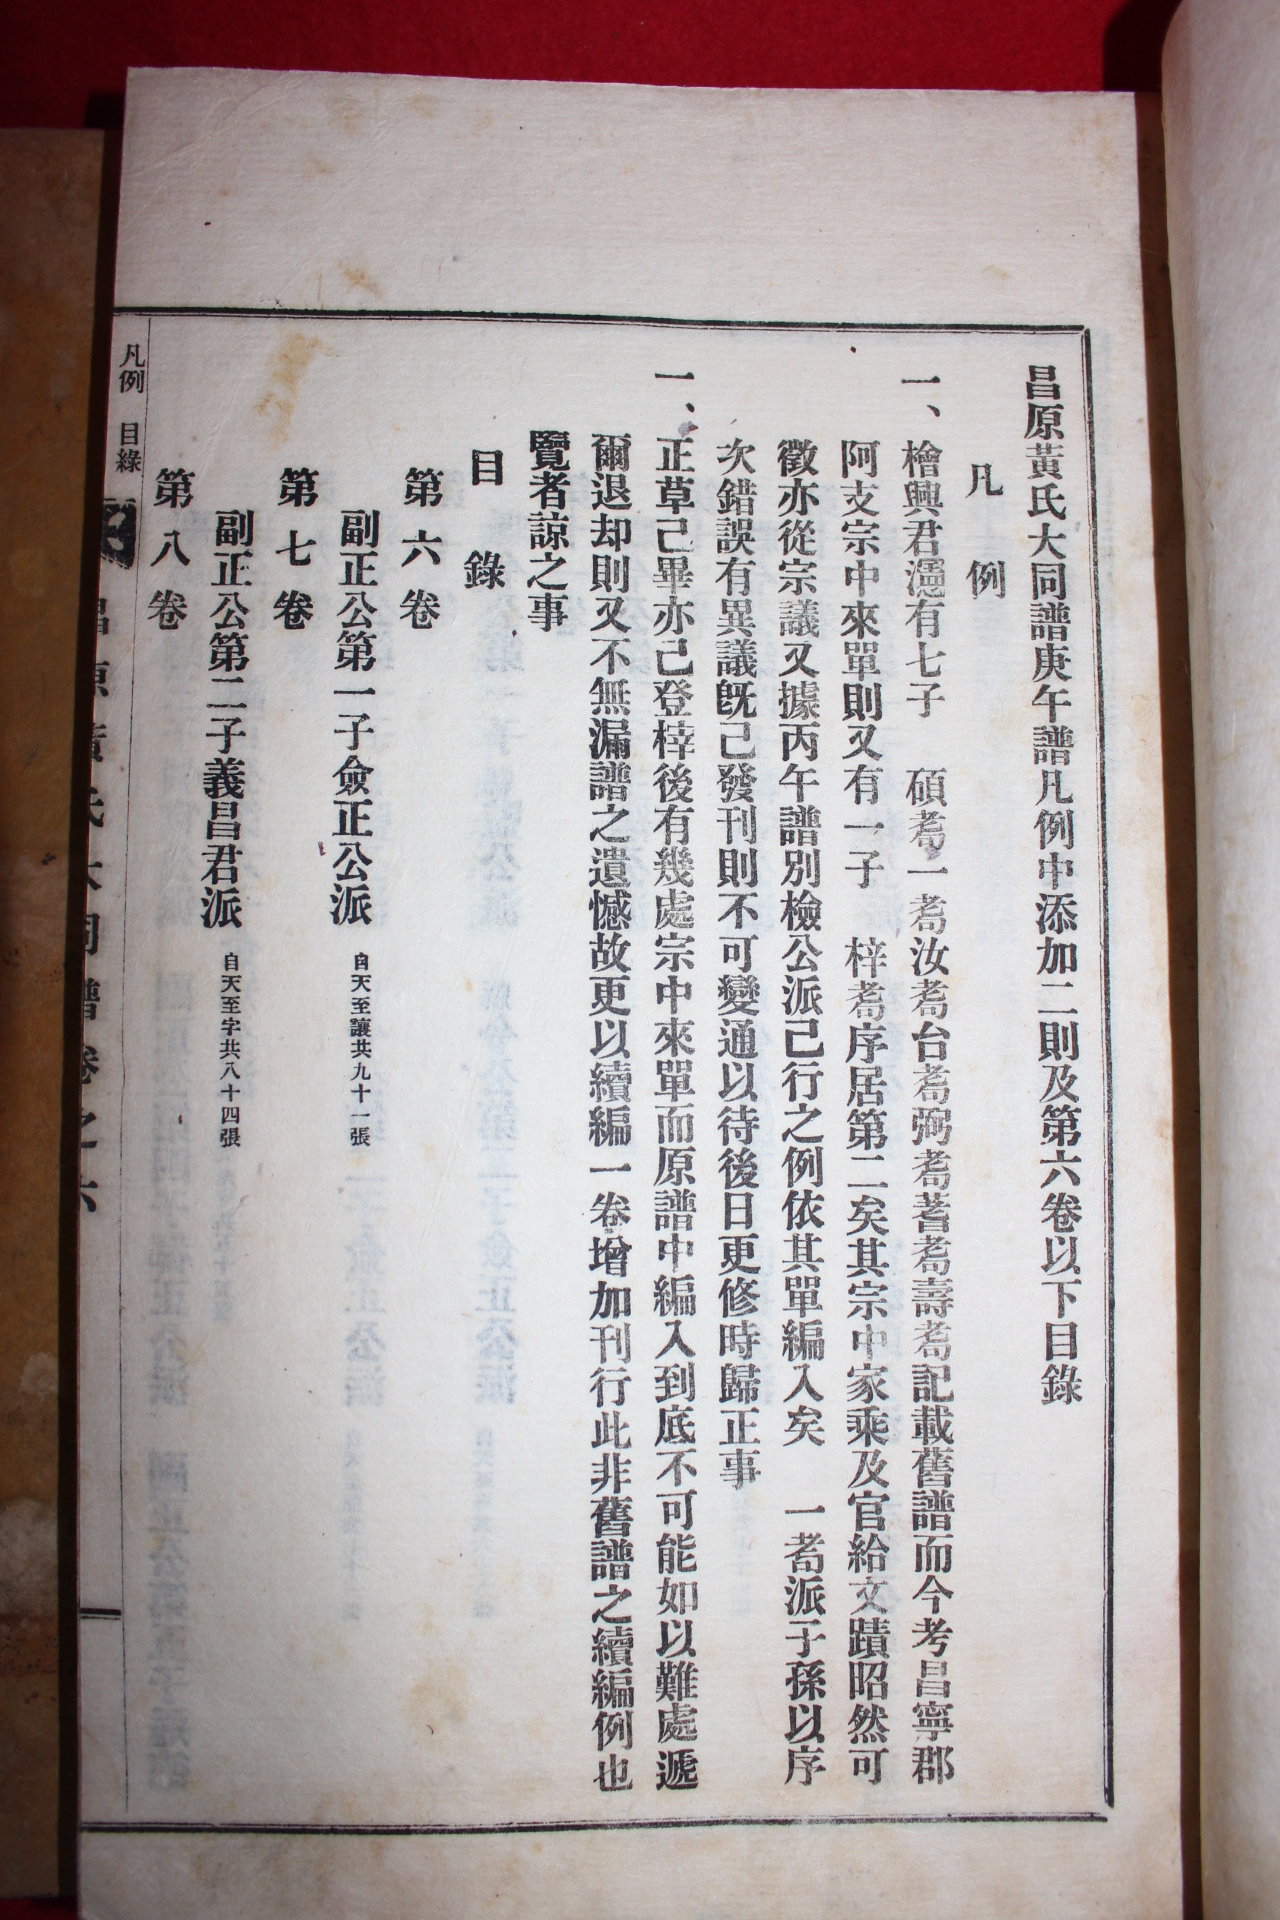 昌原黃氏大同譜庚午譜凡例中添加二則及第六卷以下目錄
凡例
一、檜興君瀗有七子 碩耉一耉汝耉台耉弼耉耆耉壽耉記載舊譜而今考昌寧郡
阿支宗中來單則又有一子 梓耉序居第二矣其宗中家乘及官給文蹟昭然可
徵亦從宗議又據丙午譜別檢公派己行之例依其單編入矣 一耉派子孫以序
次錯誤有異議旣己發刊則不可變通以待後日更修時歸正事
一、正草己畢亦己登梓後有幾處宗中來單而原譜中編入到底不可能如以難處遞
爾退却則又不無漏譜之遺憾故更以續編一卷增加刊行此非舊譜之續編例也
覽者諒之事
目錄
第六卷
副正公第一子僉正公派 自天至讓共九十一張
第七卷
副正公第二子義昌君派 自天至字共八十四張
第八卷
凡例 目錄
昌原黃氏大同譜卷之六